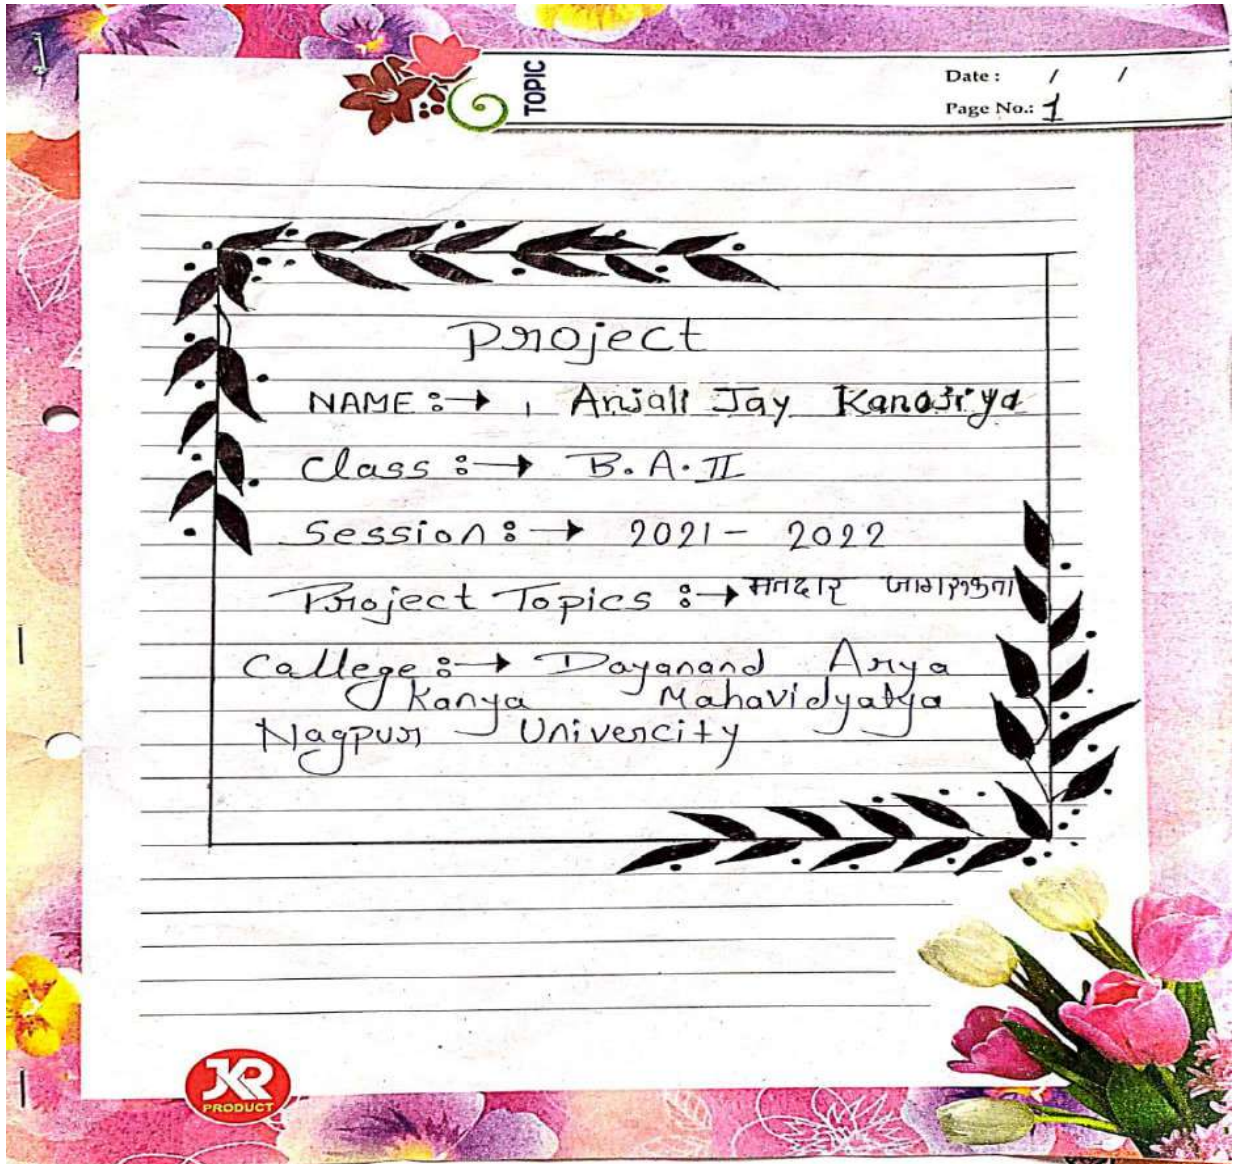 TOPIC
Date : / /
Page No.: 1
Project
NAME :→ Anjali Jay Kanojiya
Class :→ B.A.II
Session :→ 2021 - 2022
Project Topics :→ मतदार जागरूकता
College :→ Dayanand Arya
Kanya Mahavidyalya
Nagpur Univercity
JKR
PRODUCT